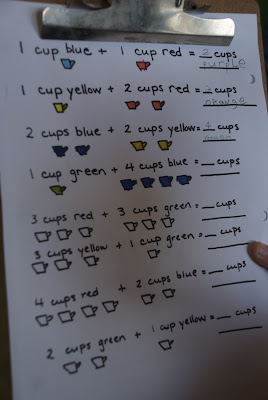 1 cup blue + 1 cup red = 2 cups
purple
1 cup yellow + 2 cups red = cups
orange
2 cups blue + 2 cups yellow = 4 cups
1 cup green + 4 cups blue = cups
3 cups red + 3 cups green = cups
3 cups yellow + 1 cup green = cups
4 cups red + 2 cups blue = cups
2 cups green + 1 cup yellow = cups